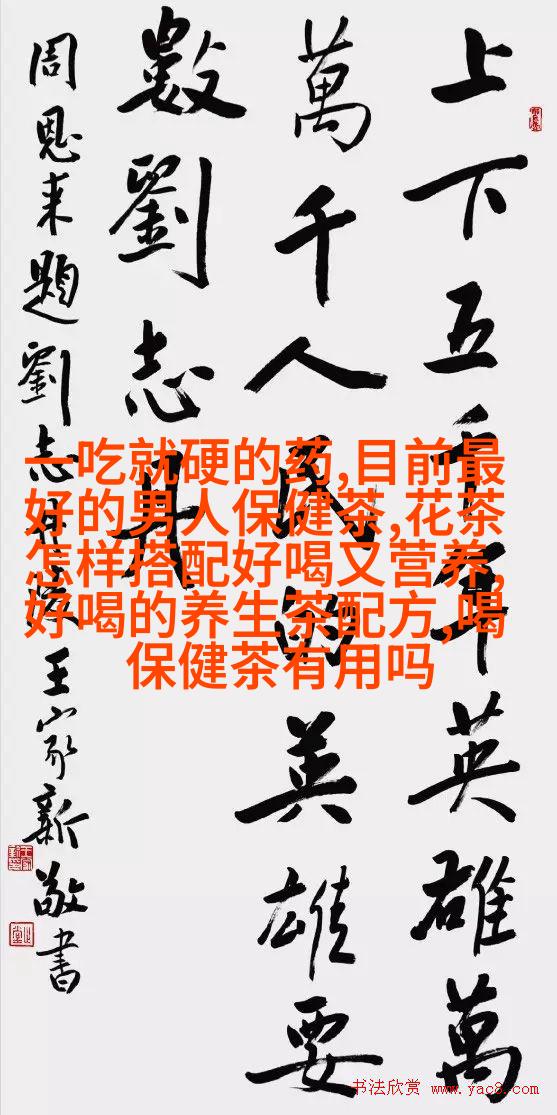 上下五千年英雄萬
萬千人民的英雄要
數劉志丹
周恩来題劉志丹王家新敬書
一吃就硬的药,目前最
好的男人保健茶,花茶
怎样搭配好喝又营养,
好喝的养生茶配方,喝
保健茶有用吗
书法欣赏 www.yac8.com